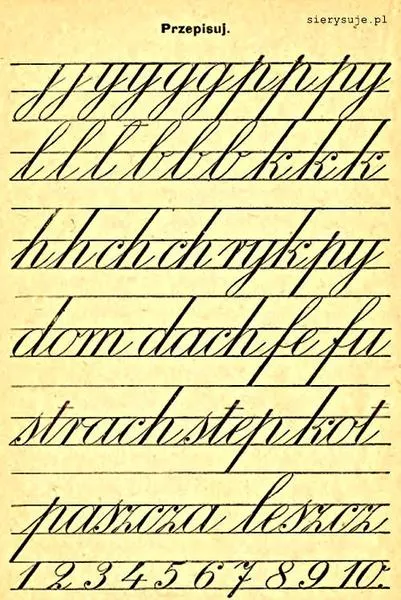 sierysuje.pl
Przepisuj.
jjjyyyggpppy
lll bbbkkk
hhchchrykpy
dom dach fe fu
strach step kot
paszcza leszcz
1 2 3 4 5 6 7 8 9 10.